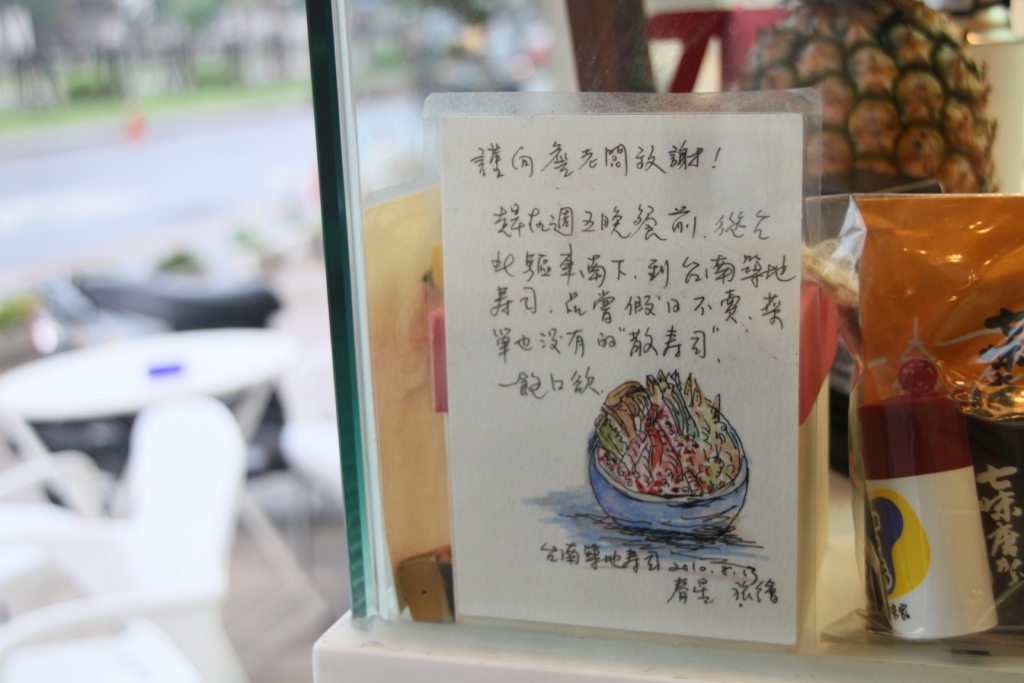 謹向詹老闆致謝！
趕在週五晚餐前，從台
北驅車南下，到台南築地
寿司，品嘗假日不賣，菜
單也沒有的"散寿司"，
一飽口欲。
台南築地寿司 2010.8.13
春星 張繪
七味唐から